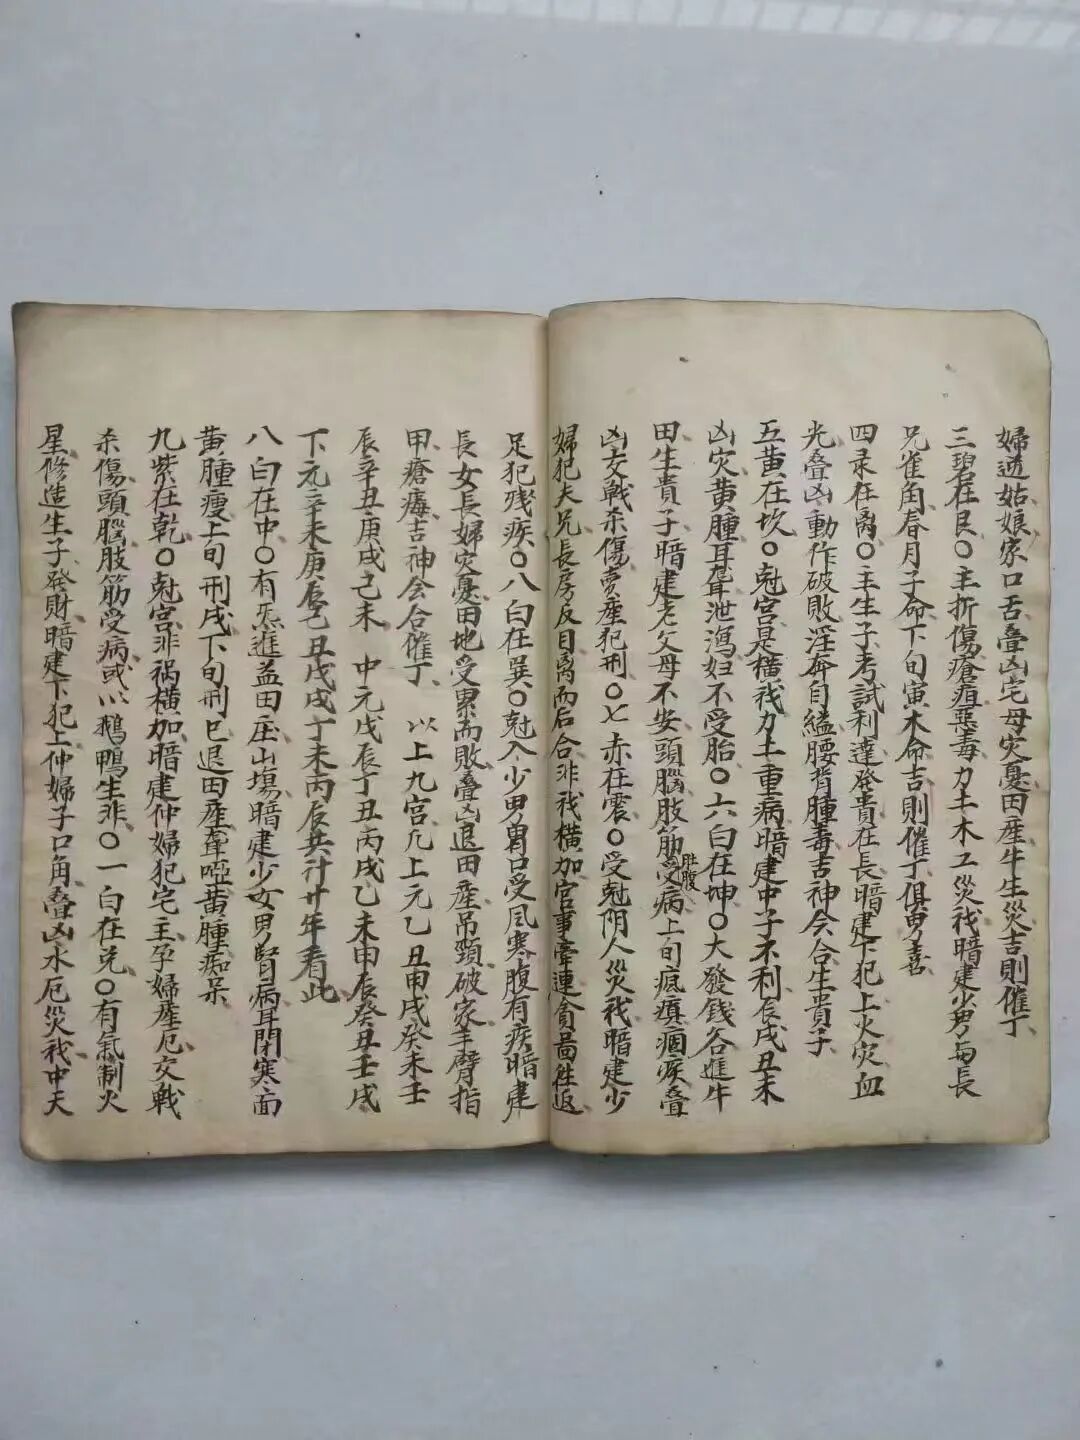 婦逆姑娘家口舌叠凶宅母灾憂田産牛生災吉則催丁
三碧在艮〇主折傷瘡疽惡毒力土木工災我暗建少男与長
兄雀角春月子命下旬寅木命吉則催丁俱男喜
四录在离〇主生子考試利達發貴在長暗建下犯上火灾血
光叠凶動作破敗淫奔自縊腰背腫毒吉神会合生貴子
五黄在坎〇尅宫是横我力土重病暗建中子不利辰戌丑未
凶灾黄腫耳聋泄瀉妇不受胎〇六白在坤〇大發钱谷進牛
田生貴子暗建老父母不安頭腦肢筋受病上旬瘋癲痼疾叠
肚腹
凶交戰杀傷賣産犯刑〇七赤在震〇受尅阴人災我暗建少
婦犯夫兄長房反目离而后合非我横加官事牵連貪啚徃返
足犯残疾〇八白在巽〇尅入少男胃口受風寒腹有疾暗建
長女長婦灾憂田地受累而敗叠凶退田産吊頸破家手臂指
甲瘡毒吉神会合催丁 以上九宫凡上元乙丑甲戌癸未壬
辰辛丑庚戌己未 中元戊辰丁丑丙戌乙未甲辰癸丑壬戌
下元辛未庚辰己丑戊戌丁未丙辰共计廿年看此
八白在中〇有炁進益田庄山塲暗建少女男腎病耳閉寒面
黄腫瘦上旬刑戌下旬刑巳退田産聋啞黄腫痴呆
九紫在乾〇尅宫非祸横加暗建仲婦犯宅主孕婦産厄交戰
杀傷頭腦肢筋受病或以鵝鴨生非〇一白在兑〇有氣制火
星修造生子發財暗建下犯上仲婦子口角叠凶水厄災我中天